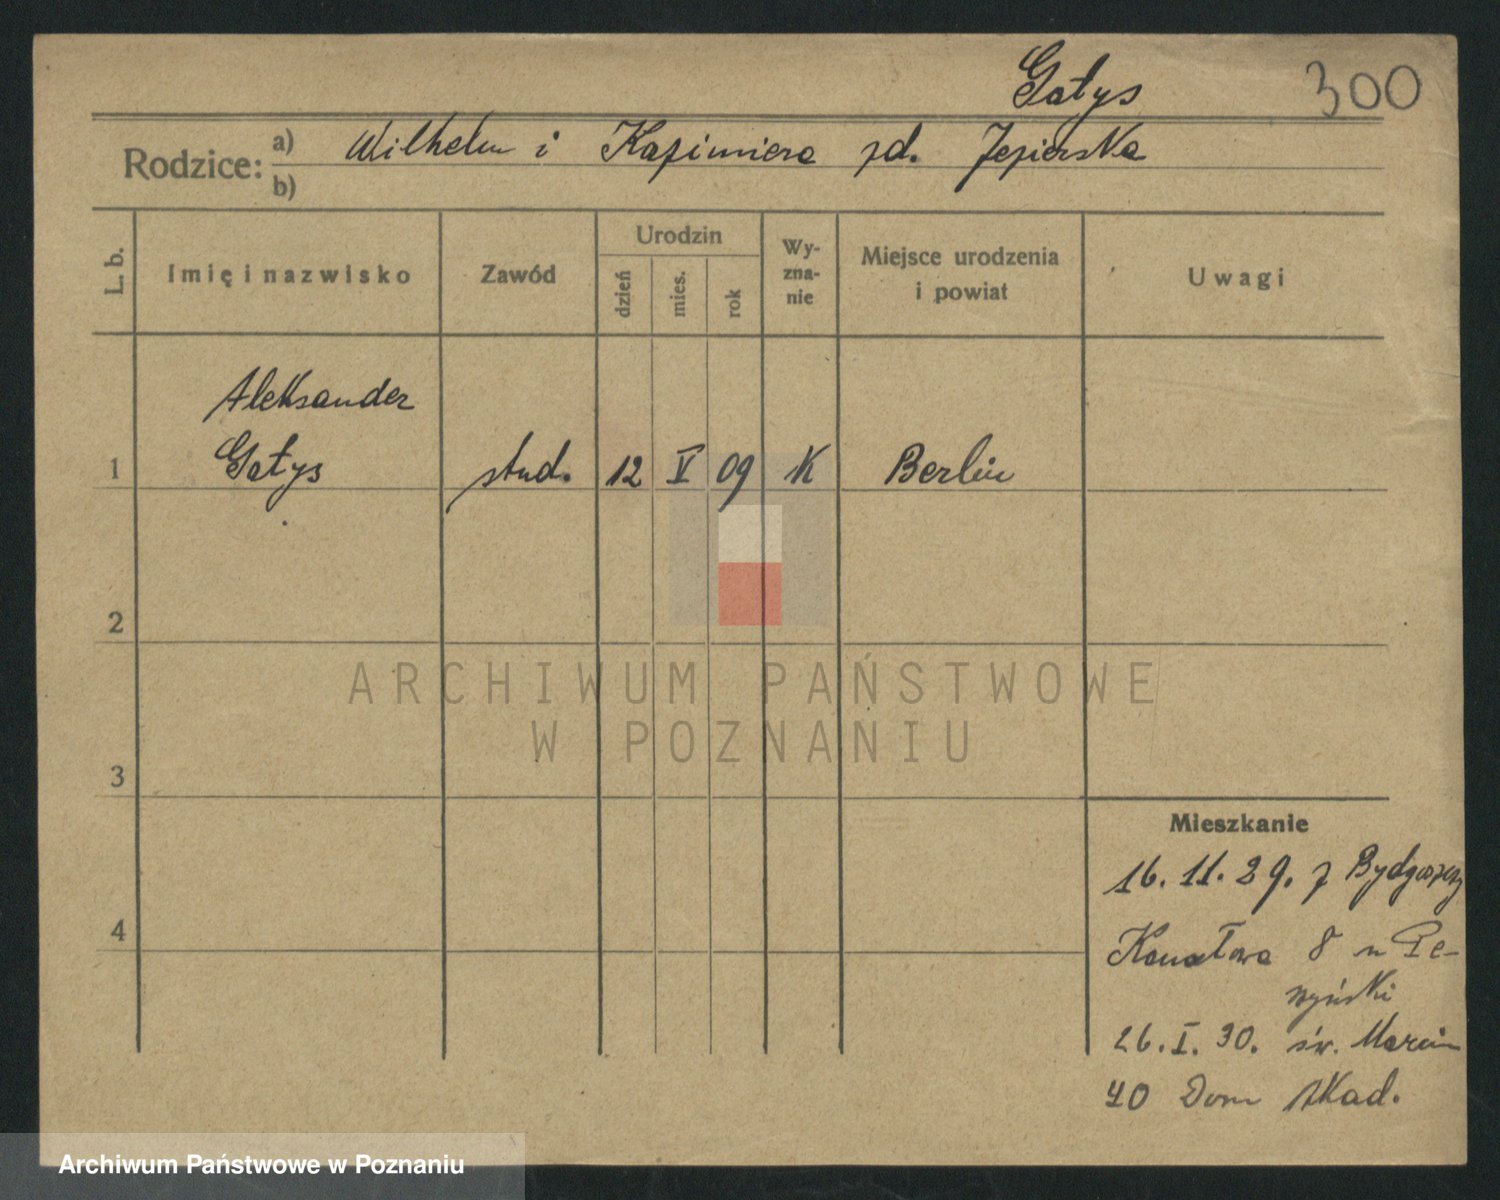 Gałys 300
Rodzice: a) Wilhelm i Kazimiera zd. Jezierska
b)
L. b. Imię i nazwisko Zawód Urodzin dzień mies. rok Wy-zna-nie Miejsce urodzenia i powiat Uwagi
Aleksander
1 Gałys stud. 12 V 09 K Berlin
2
ARCHIWUM PAŃSTWOWE
W POZNANIU
3
Mieszkanie
16. 11. 29. z Bydgoszczy
4 Kanałowa 8
26. I. 30. św. Marcin
40 Dom Akad.
Archiwum Państwowe w Poznaniu